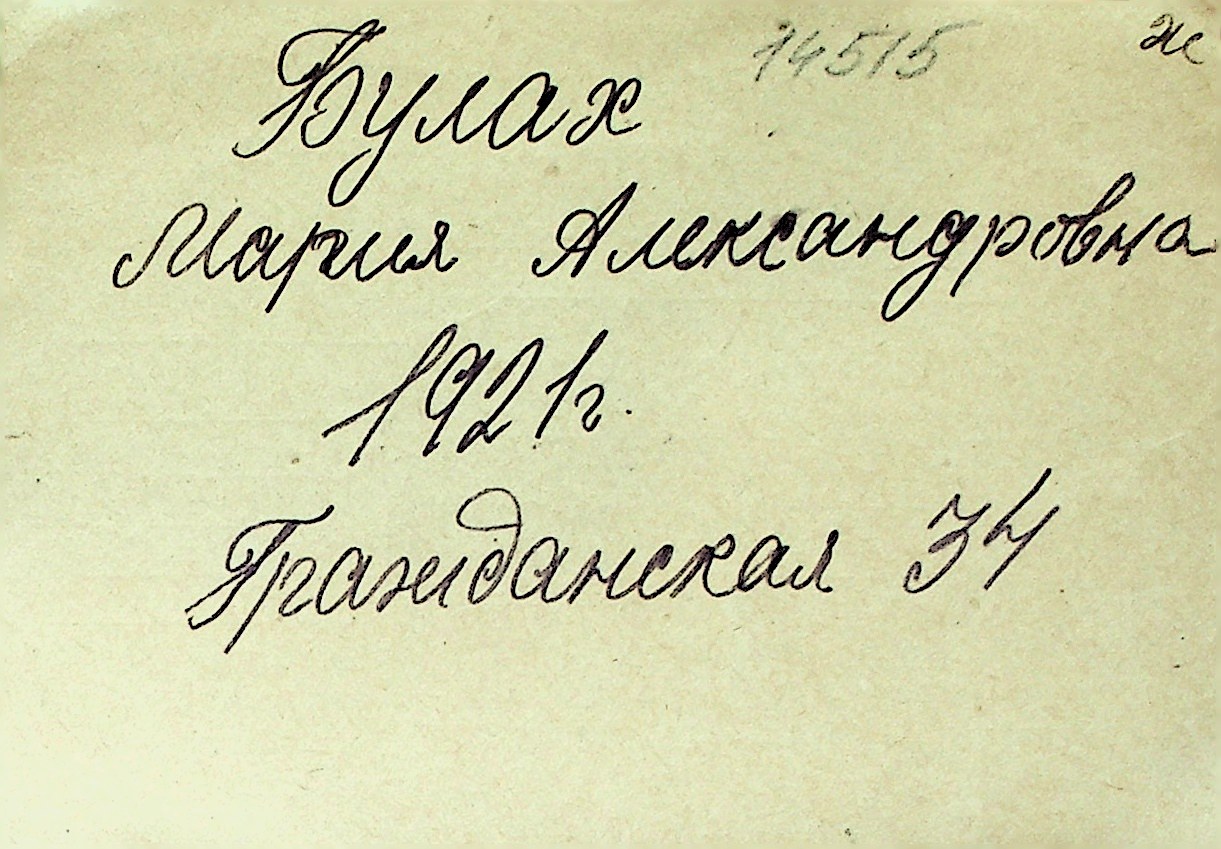 14515 ж
Булах
Мария Александровна
1921г.
Гражданская 34